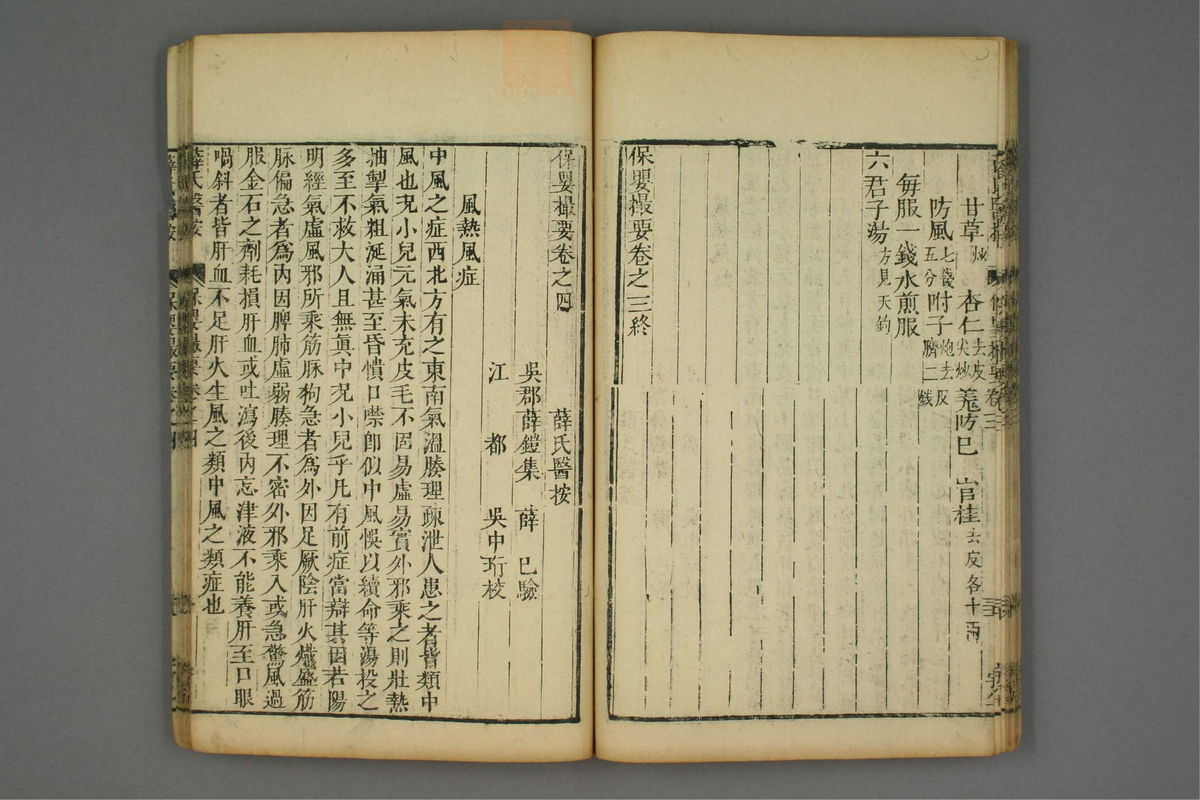 甘草炒 杏仁去皮尖炒 羌防巳 官桂去皮各十兩
防風七錢五分 附子炮去皮臍二錢
每服一錢水煎服
六君子湯方見天釣
保嬰撮要卷之三終
保嬰撮要卷之四
薛氏醫按
吳郡薛鎧集 薛 巳驗
江 都 吳中珩校
風熱風症
中風之症西北方有之東南氣溫腠理疎泄人患之者皆類中
風也况小兒元氣未充皮毛不固易虛易實外邪乘之則壯熱
抽掣氣粗涎涌甚至昏憒口噤即似中風悞以續命等湯投之
多至不救大人且無眞中况小兒乎凡有前症當辯其因若陽
明經氣虛風邪所乘筋脉拘急者爲外因足厥陰肝火熾盛筋
脉偏急者爲內因脾肺虛弱腠理不密外邪乘入或急驚風過
服金石之劑耗損肝血或吐瀉後內忘津液不能養肝至口眼
喎斜者皆肝血不足肝火生風之類中風之類症也
薛氏醫按 保嬰撮要卷之四